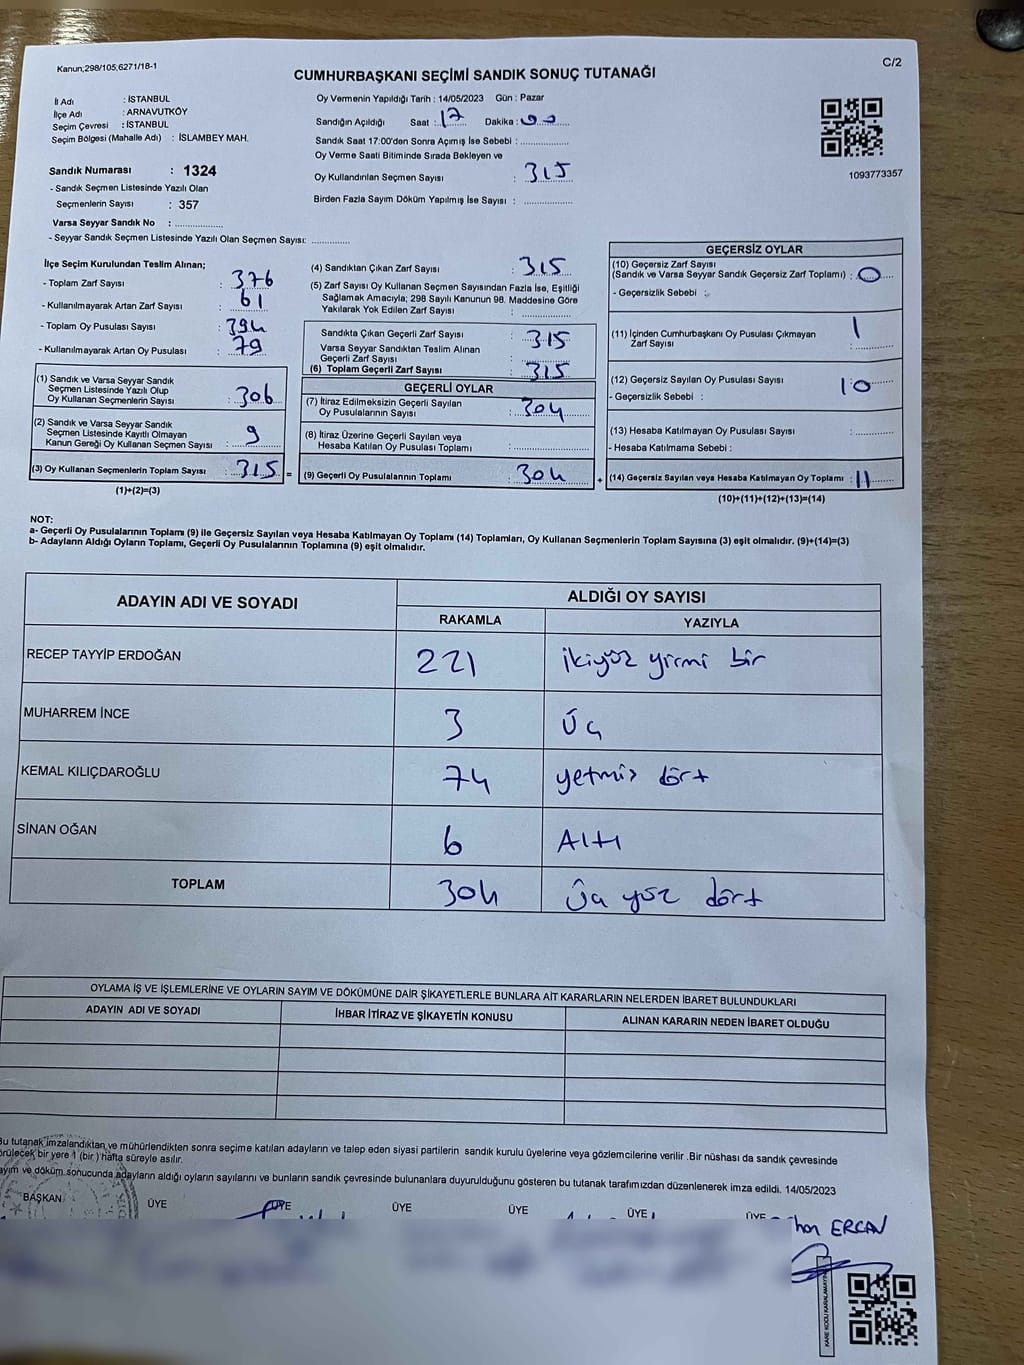 Kanun,298/105,6271/18-1
C/2
CUMHURBAŞKANI SEÇİMİ SANDIK SONUÇ TUTANAĞI
İl Adı : İSTANBUL
İlçe Adı : ARNAVUTKÖY
Seçim Çevresi : İSTANBUL
Seçim Bölgesi (Mahalle Adı) : İSLAMBEY MAH.
Sandık Numarası : 1324
- Sandık Seçmen Listesinde Yazılı Olan
Seçmenlerin Sayısı : 357
Varsa Seyyar Sandık No :
- Seyyar Sandık Seçmen Listesinde Yazılı Olan Seçmen Sayısı:
Oy Vermenin Yapıldığı Tarih : 14/05/2023 Gün : Pazar
Sandığın Açıldığı Saat : 17 Dakika : 00
Sandık Saat 17:00'den Sonra Açımış İse Sebebi :
Oy Verme Saati Bitiminde Sırada Bekleyen ve
Oy Kullandırılan Seçmen Sayısı : 315
Birden Fazla Sayım Döküm Yapılmış İse Sayısı :
1093773357
İlçe Seçim Kurulundan Teslim Alınan;
- Toplam Zarf Sayısı : 376
- Kullanılmayarak Artan Zarf Sayısı : 61
- Toplam Oy Pusulası Sayısı : 394
- Kullanılmayarak Artan Oy Pusulası : 79
(1) Sandık ve Varsa Seyyar Sandık
Seçmen Listesinde Yazılı Olup
Oy Kullanan Seçmenlerin Sayısı : 306
(2) Sandık ve Varsa Seyyar Sandık
Seçmen Listesinde Kayıtlı Olmayan
Kanun Gereği Oy Kullanan Seçmen Sayısı : 9
(3) Oy Kullanan Seçmenlerin Toplam Sayısı : 315 =
(1)+(2)=(3)
(4) Sandıktan Çıkan Zarf Sayısı : 315
(5) Zarf Sayısı Oy Kullanan Seçmen Sayısından Fazla İse, Eşitliği
Sağlamak Amacıyla; 298 Sayılı Kanunun 98. Maddesine Göre
Yakılarak Yok Edilen Zarf Sayısı :
Sandıkta Çıkan Geçerli Zarf Sayısı : 315
Varsa Seyyar Sandıktan Teslim Alınan
Geçerli Zarf Sayısı :
(6) Toplam Geçerli Zarf Sayısı : 315
GEÇERLİ OYLAR
(7) İtiraz Edilmeksizin Geçerli Sayılan
Oy Pusulalarının Sayısı : 304
(8) İtiraz Üzerine Geçerli Sayılan veya
Hesaba Katılan Oy Pusulası Toplamı :
(9) Geçerli Oy Pusulalarının Toplamı : 304 +
GEÇERSİZ OYLAR
(10) Geçersiz Zarf Sayısı
(Sandık ve Varsa Seyyar Sandık Geçersiz Zarf Toplamı) : 0
- Geçersizlik Sebebi :
(11) İçinden Cumhurbaşkanı Oy Pusulası Çıkmayan
Zarf Sayısı : 1
(12) Geçersiz Sayılan Oy Pusulası Sayısı : 10
- Geçersizlik Sebebi :
(13) Hesaba Katılmayan Oy Pusulası Sayısı :
- Hesaba Katılmama Sebebi :
(14) Geçersiz Sayılan veya Hesaba Katılmayan Oy Toplamı : 11
(10)+(11)+(12)+(13)=(14)
NOT:
a- Geçerli Oy Pusulalarının Toplamı (9) ile Geçersiz Sayılan veya Hesaba Katılmayan Oy Toplamı (14) Toplamları, Oy Kullanan Seçmenlerin Toplam Sayısına (3) eşit olmalıdır. (9)+(14)=(3)
b- Adayların Aldığı Oyların Toplamı, Geçerli Oy Pusulalarının Toplamına (9) eşit olmalıdır.
ADAYIN ADI VE SOYADI
ALDIĞI OY SAYISI
RAKAMLA
YAZIYLA
RECEP TAYYİP ERDOĞAN 221 ikiyüz yirmi bir
MUHARREM İNCE 3 üç
KEMAL KILIÇDAROĞLU 74 yetmiş dört
SİNAN OĞAN 6 Altı
TOPLAM 304 üç yüz dört
OYLAMA İŞ VE İŞLEMLERİNE VE OYLARIN SAYIM VE DÖKÜMÜNE DAİR ŞİKAYETLERLE BUNLARA AİT KARARLARIN NELERDEN İBARET BULUNDUKLARI
ADAYIN ADI VE SOYADI
İHBAR İTİRAZ VE ŞİKAYETİN KONUSU
ALINAN KARARIN NEDEN İBARET OLDUĞU
Bu tutanak imzalandıktan ve mühürlendikten sonra seçime katılan adayların ve talep eden siyasi partilerin sandık kurulu üyelerine veya gözlemcilerine verilir .Bir nüshası da sandık çevresinde
örülecek bir yere 1 (bir ) hafta süreyle asılır.
ayım ve döküm sonucunda adayların aldığı oyların sayılarını ve bunların sandık çevresinde bulunanlara duyurulduğunu gösteren bu tutanak tarafımızdan düzenlenerek imza edildi. 14/05/2023
BAŞKAN ÜYE ÜYE ÜYE ÜYE ÜYE ÜYE
ERCAN